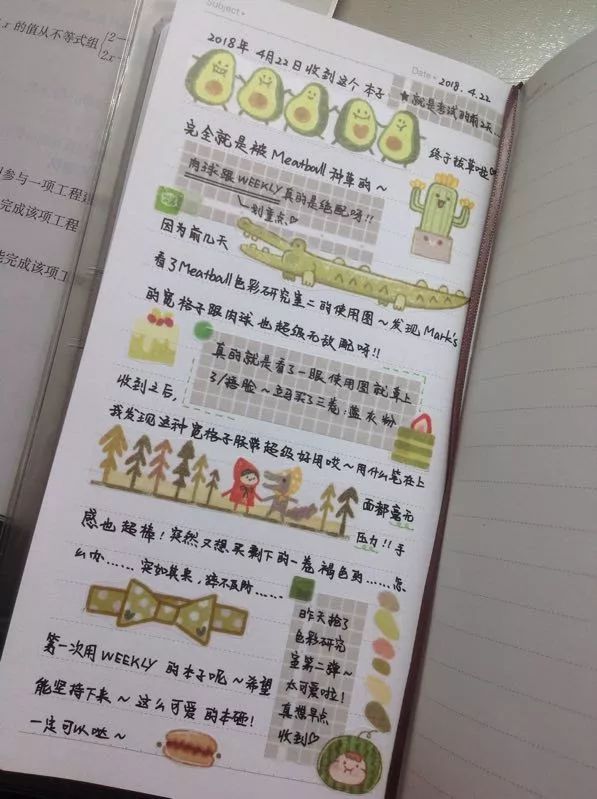 x的值从不等式组{2-
2x-
参与一项工程建
完成该项工程
能完成该项工
Subject•
Date• 2018.4.22
2018年4月22日收到这个本子
★就是考试的前2天...
终于拔草啦
完全就是被Meatball种草的~
肉球跟WEEKLY真的是绝配呀!!
划重点♡
因为前几天
看了Meatball色彩研究室二的使用图~发现Mark's
的宽格子跟肉球也超级无敌配呀!!
真的就是看了一眼使用图就草上
了/捂脸~ 立马买了三卷:蓝灰粉
收到之后,
我发现这种宽格子胶带超级好用哎~用什么笔在上
面都毫无
压力!!手
感也超棒!突然又想买剩下的一卷褐色的......怎
么办......突如其来,猝不及防......
昨天抢了
色彩研究
室第二弹~
太可爱啦!
真想早点
收到♡
第一次用WEEKLY的本子呢~希望
能坚持下来~这么可爱的本砸!
一定可以哒~